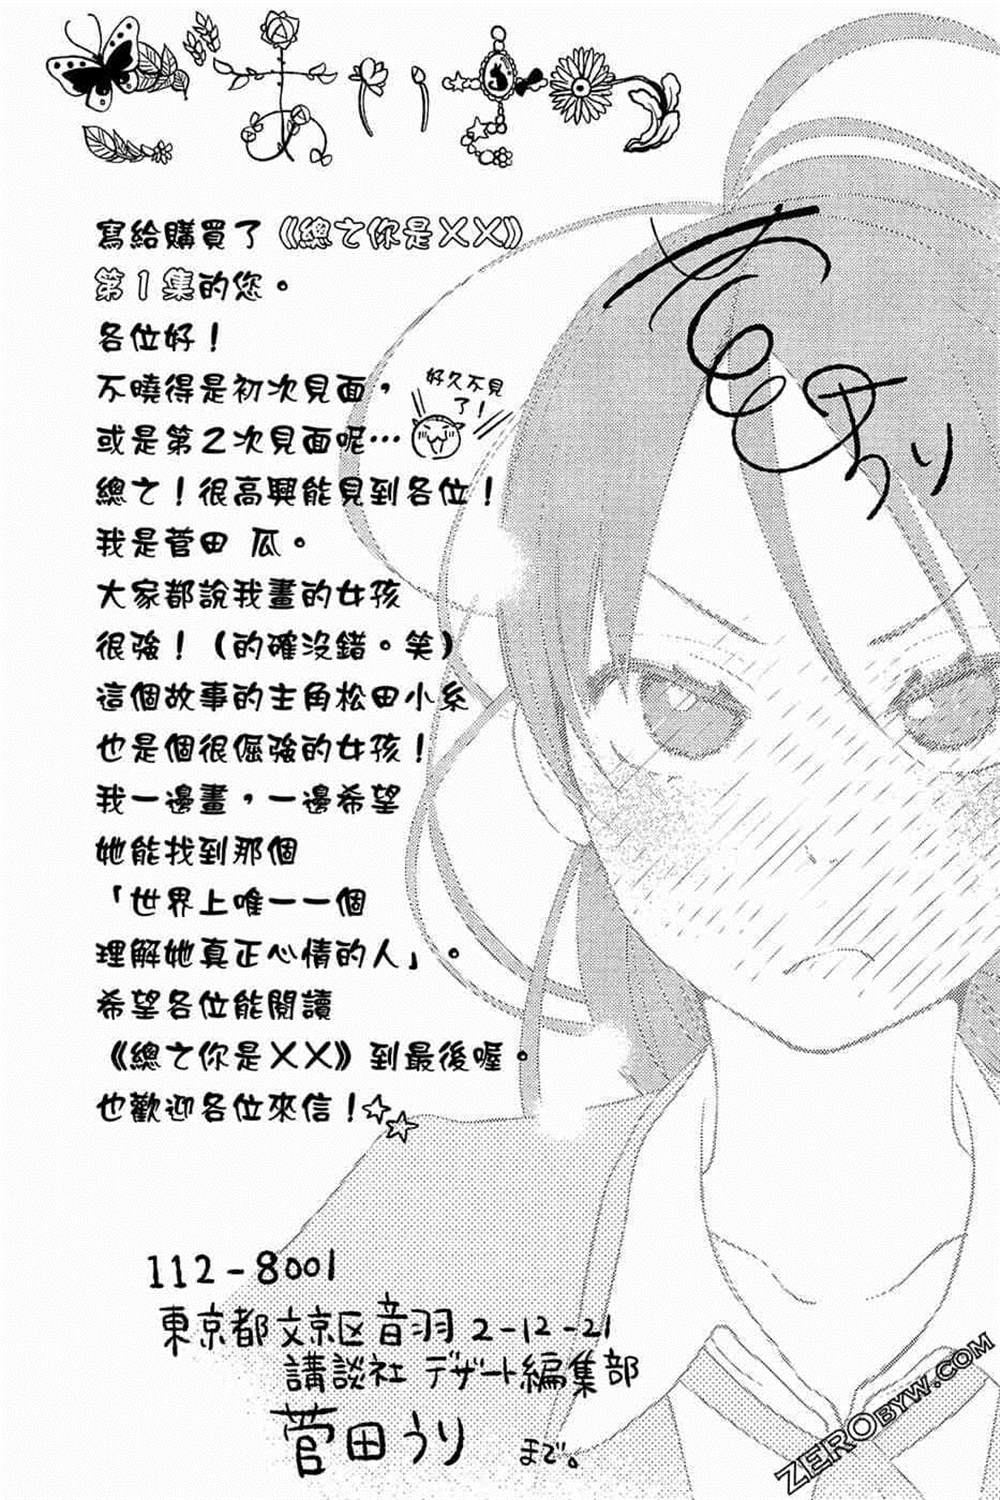 ごあいさつ
寫給購買了《總之你是××》
第1集的您。
各位好！
不曉得是初次見面，
或是第2次見面呢…
好久不見
了！
總之！很高興能見到各位！
我是菅田 瓜。
大家都說我畫的女孩
很強！（的確沒錯。笑）
這個故事的主角松田小糸
也是個很倔強的女孩！
我一邊畫，一邊希望
她能找到那個
「世界上唯一一個
理解她真正心情的人」。
希望各位能閱讀
《總之你是××》到最後喔。
也歡迎各位來信！
112-8001
東京都文京区音羽 2-12-21
講談社 デザート編集部
菅田うり まで。
ZEROBYW.COM